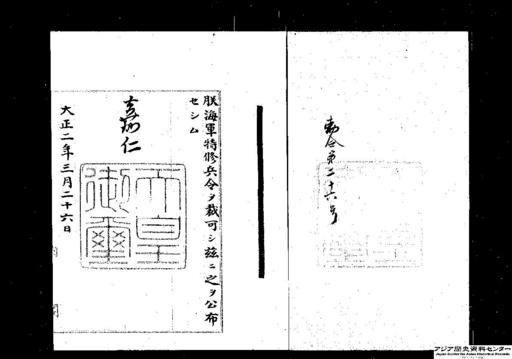 勅令第二十六号
朕海軍特修兵令ヲ裁可シ玆ニ之ヲ公布
セシム
嘉仁
天皇
御璽
大正二年三月二十六日
アジア歴史資料センター
Japan Center for Asian Historical Records